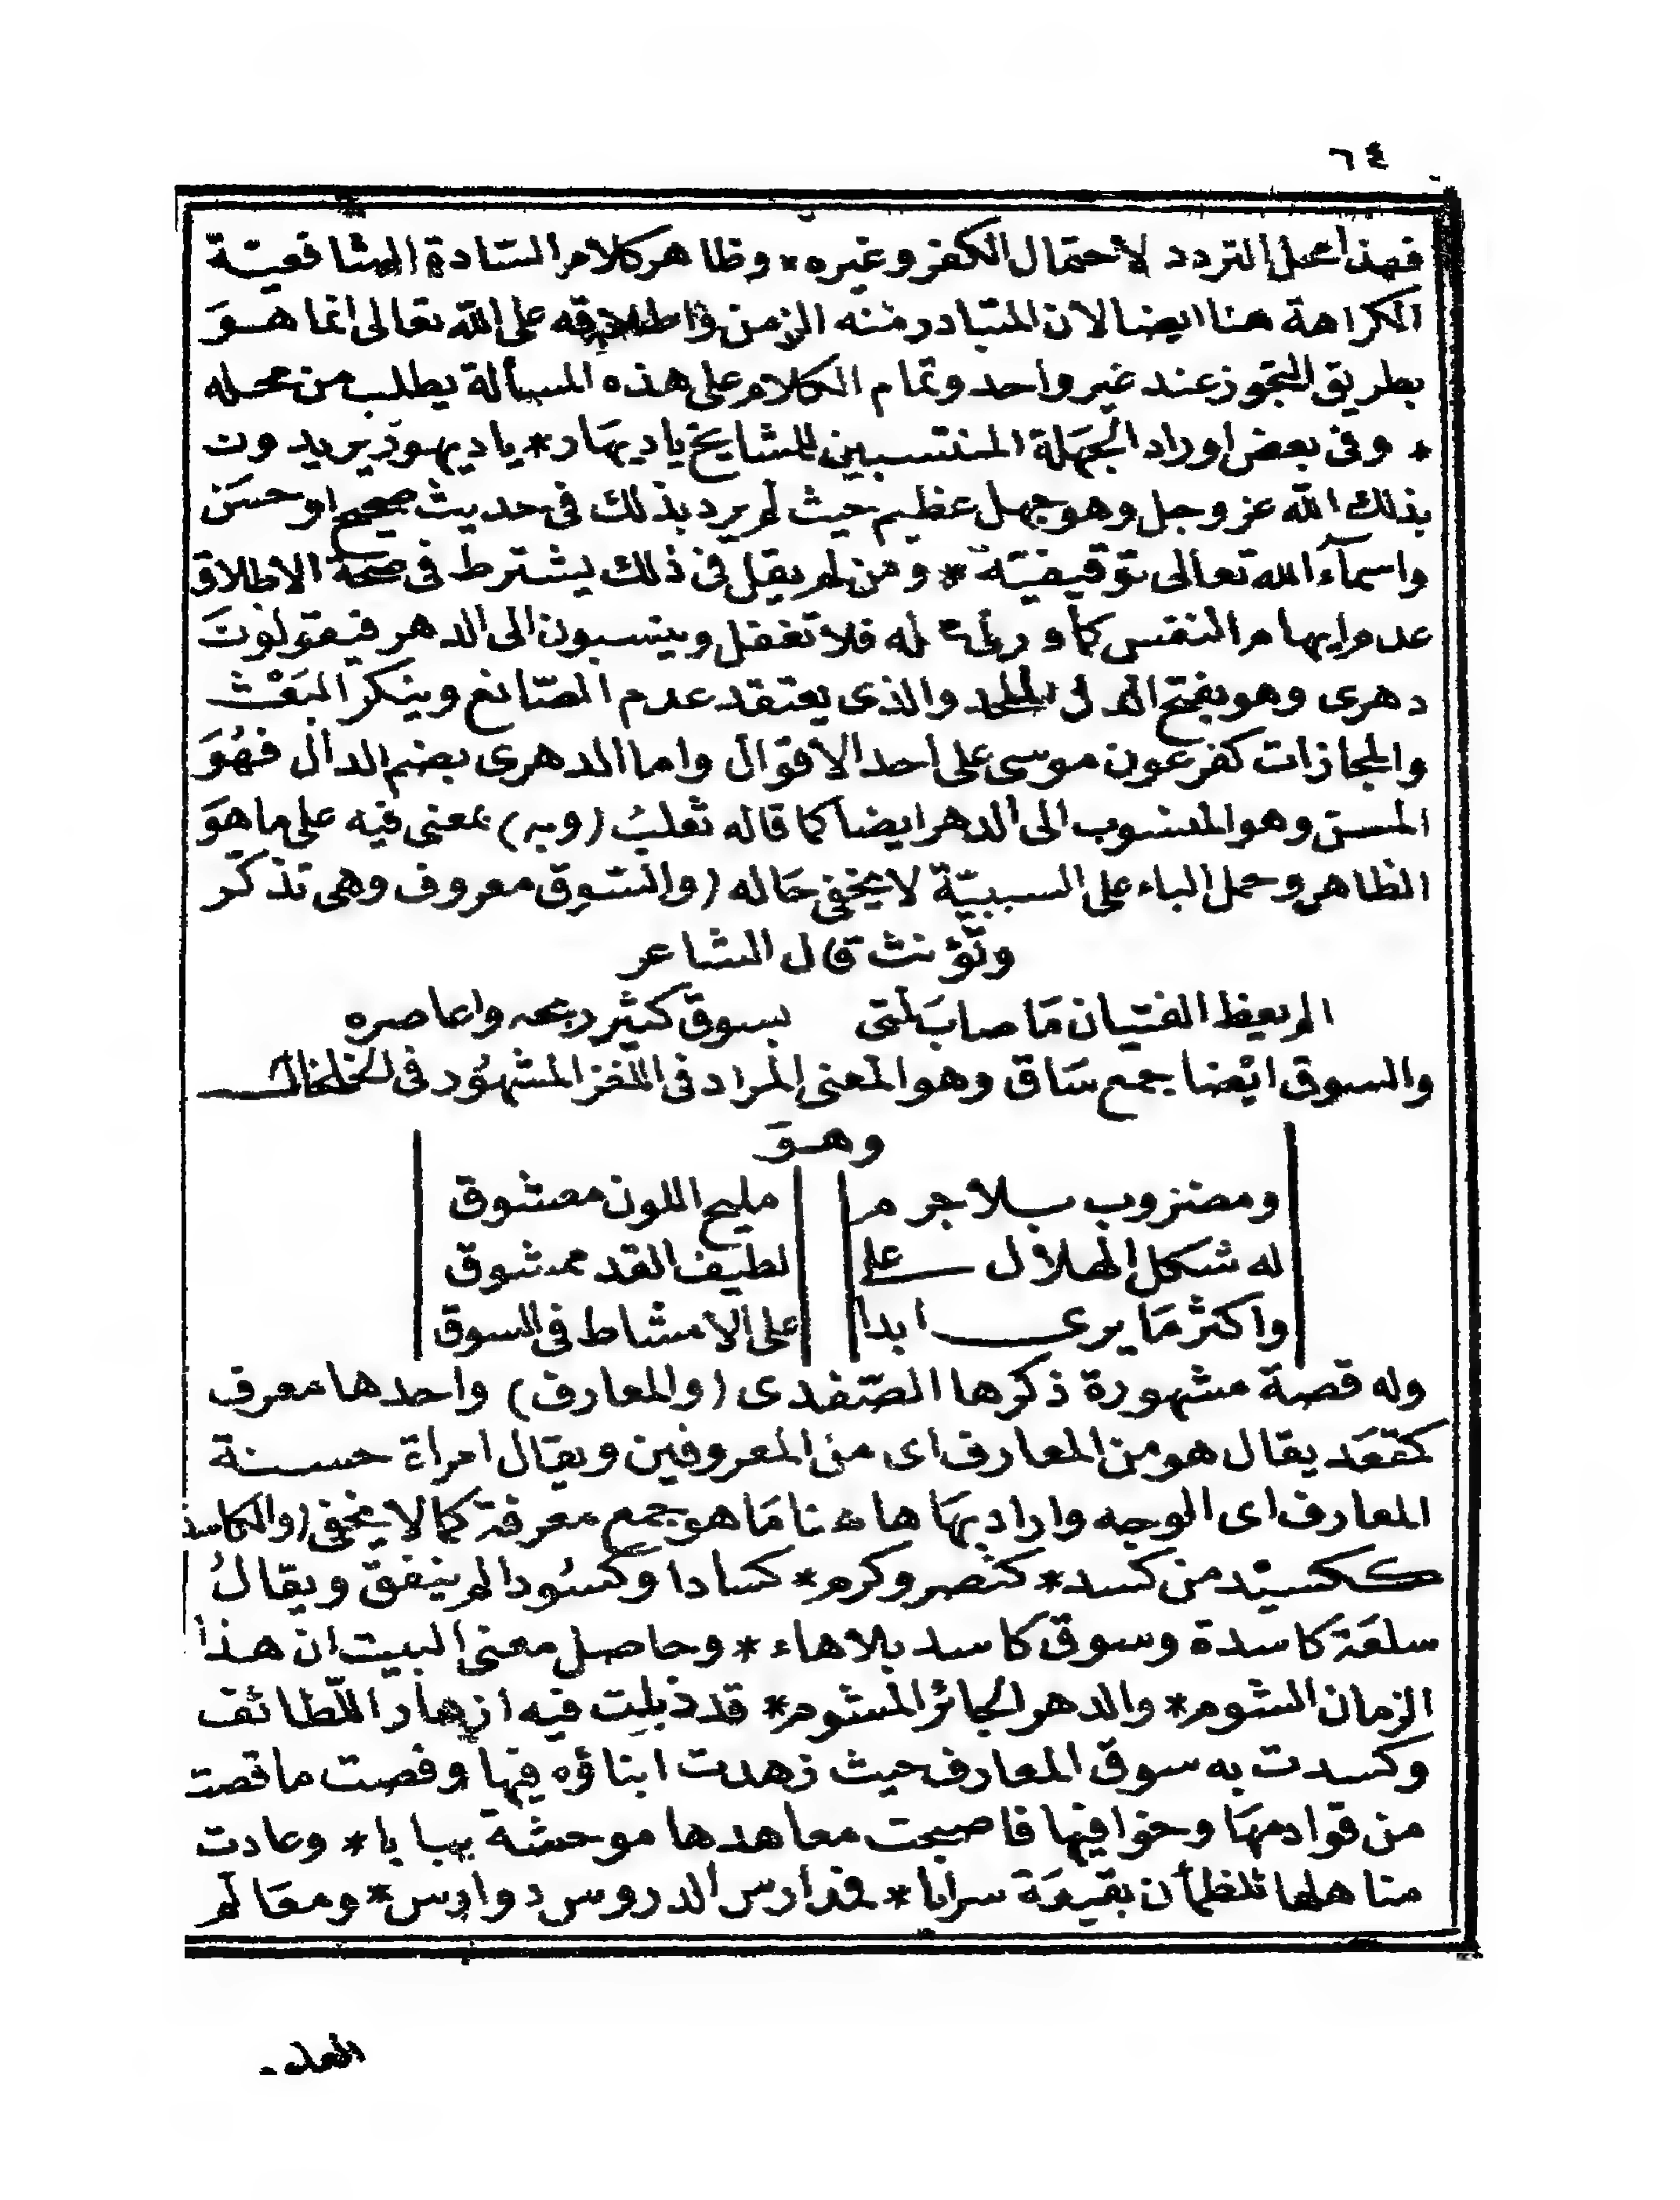 ٦٤
فهذا محل التردد لاحتمال الكفر وغيره * وظاهر كلام السّادة الشافعيّة
الكراهة هنا ايضا لان المتبادر منه الزمن واطلاقه على الله تعالى انما هوَ
بطريق التجوز عند غير واحد وتمام الكلام على هذه المسألة يطلب من محله
* وفى بعض اوراد الجهَلة المنتسبين للمشايخ ياديهَار * ياديهوَر يريدون
بذلك الله عز وجل وهو جهل عظيم حيث لم يرد بذلك فى حديث صحيح او حسَن
واسمآء الله تعالى توقيفيّة * ومن لم يقل فى ذلك يشترط فى صحة الاطلاق
عدم ايهام النقص كما و له فلا تغفل وينسبون الى الدهر فيقولونَ
دهرى وهو بفتح الدال الملحد والذى يعتقد عدم الصّانع وينكر البَعْث
والمجازات كفرعون موسى على احد الاقوال واما الدهرى بضم الدال فهُوَ
المسن وهو المنسوب الى الدهر ايضا كما قاله ثعلبُ (وبه) بمعنى فيه على ما هوَ
الظاهر وحمل الباء على السببيّة لا يخفى حَاله (والسّوق معروف وهى تذكّر
وتؤنث قال الشاعر
الم يعظ الفتيان مَا صابَ لمّتى بسوق كثير ريحه واعاصره
والسوق ايْضا جمع سَاق وهو المعنى المراد فى اللغز المشهُور فى الخلخال
وهوَ
ومضروب بلا جرم مليح اللون معشوق
له شكل الهلال على لطيف القد ممشوق
واكثر مَا يرى ابدا على الامشاط فى السوق
وله قصة مشهورة ذكرها الصّفدى (والمعارف) واحدها معرف
كمقعَد يقال هو من المعارف اى من المعروفين ويقال امراة حسنة
المعارف اى الوجه واراد بهَا هاهنا مَا هو جمع معرفة كما لا يخفى (والكاسد
ككسيْد من كسد * كنصر وكرم * كسادا وكسُودا لم ينفق ويقالُ
سلعَة كاسدة وسوق كاسد بلا هاء * وحاصل معنى البيت ان هذا
الزمان الشوم * والدهر الجائر المشوم * قد ذبلت فيه ازهار اللّطائف
وكسدت به سوق المعارف حيث زهدت ابناؤه فيها وقصت ما قصت
من قوادمهَا وخوافيها فاصبحت معاهدها موحشة يبابا * وعادت
مناهلها للظمأن بقيعَة سرابا * فمدارس الدروس دوارس * ومعَالم